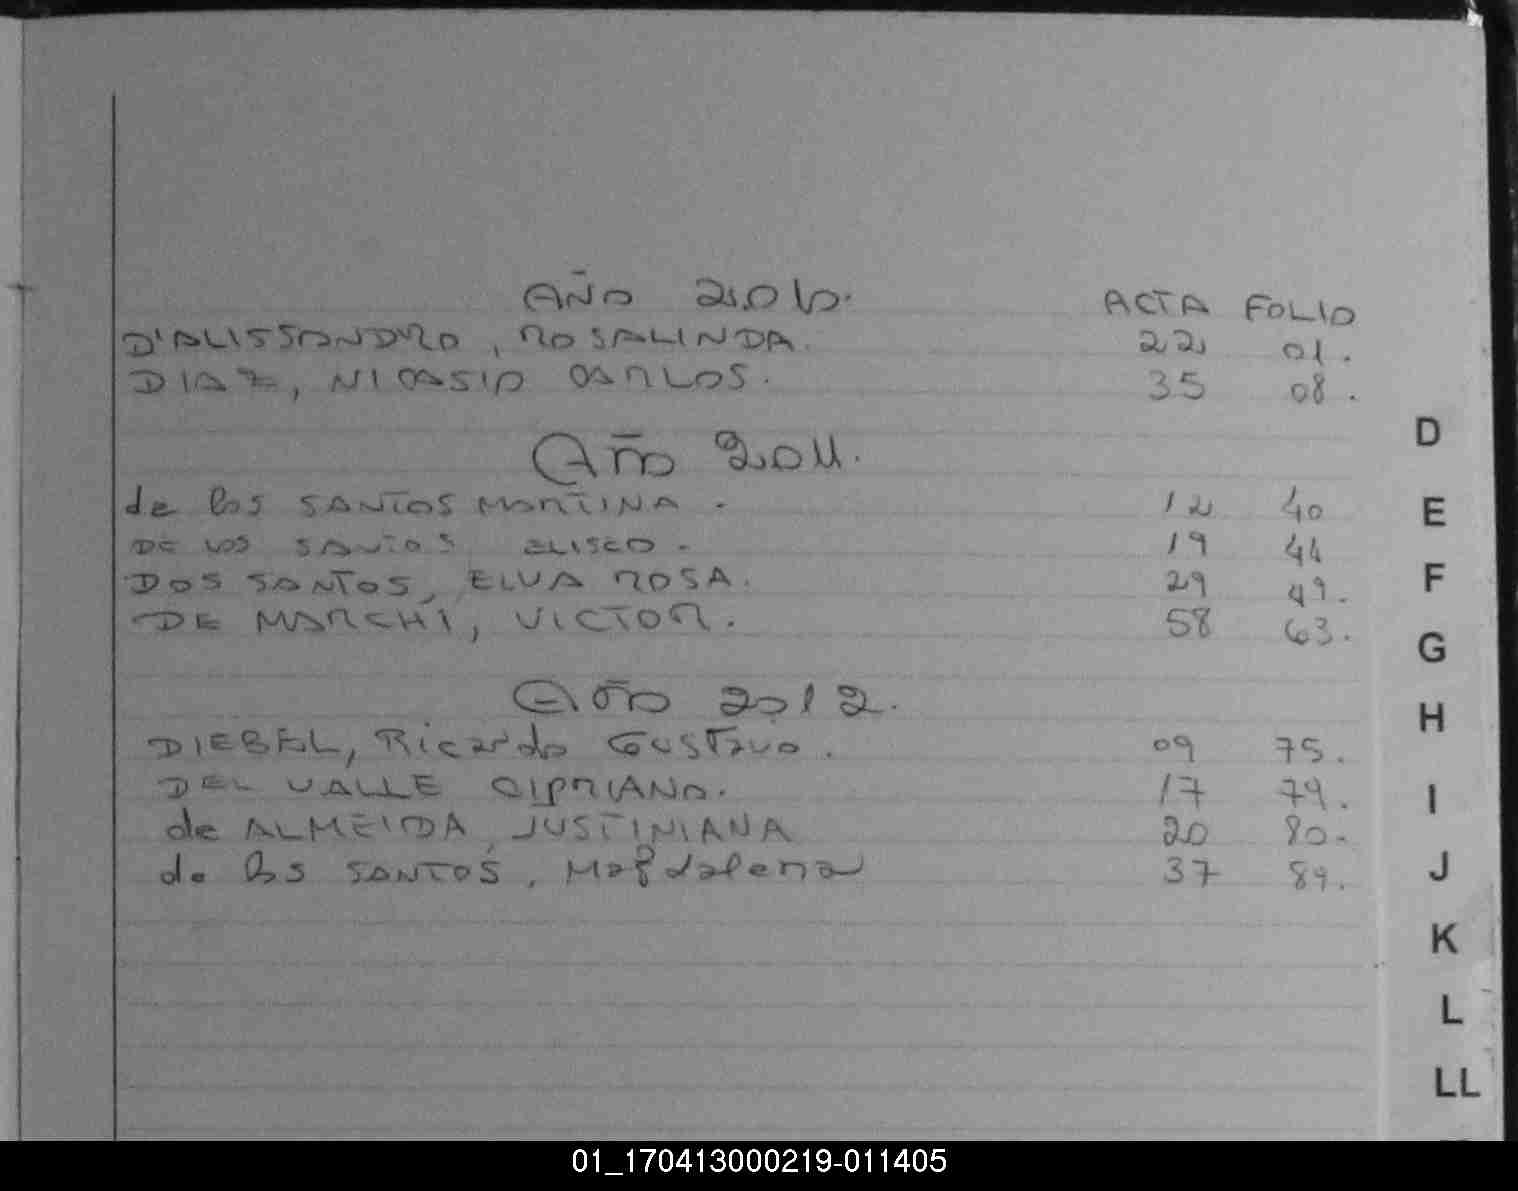 AÑO 2.010. ACTA FOLIO
D'ALISSANDRO, ROSALINDA. 22 01.
DIAZ, NICASIO CARLOS. 35 08.
Año 2.011.
de los SANTOS MARTINA. 12 40
DE LOS SANTOS ELISEO. 19 44
DOS SANTOS, ELVA ROSA. 29 49.
DE MARCHI, VICTOR. 58 63.
Año 2.012.
DIEBEL, Ricardo Gustavo. 09 75.
DEL VALLE CIPRIANO. 17 79.
de ALMEIDA, JUSTINIANA 20 80.
de los SANTOS, Magdalena 37 89.
D
E
F
G
H
I
J
K
L
LL
01_170413000219-011405